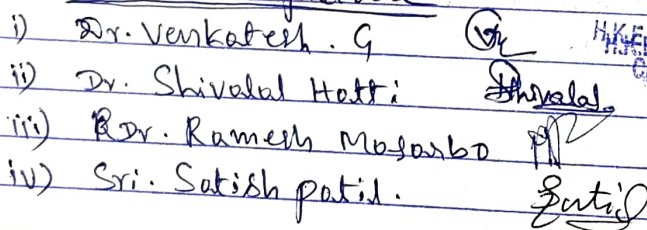 i) Dr. Venkatesh. G
ii) Dr. Shivalal Hatti Shivalal
iii) Dr. Ramesh
iv) Sri. Satish patil. Satis